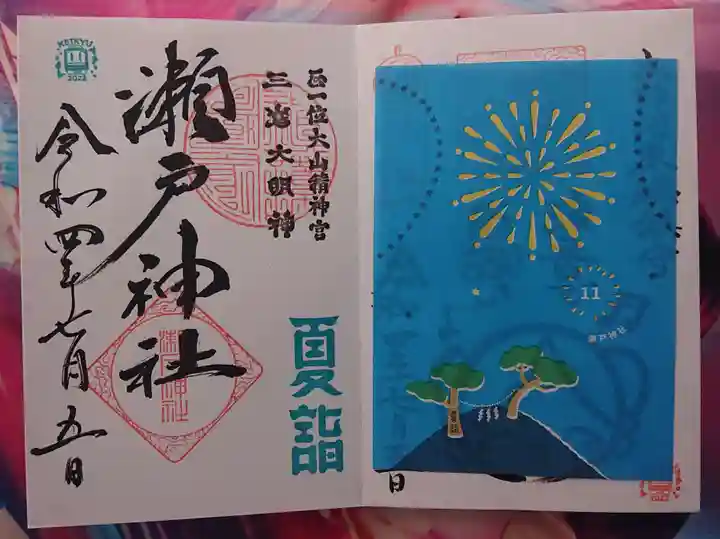 KEIKYU
2022
正一位大山積神宮
三嶋大明神
瀬戸神社
令和四年七月五日
夏詣
瀬戸神社
11
夏詣
日